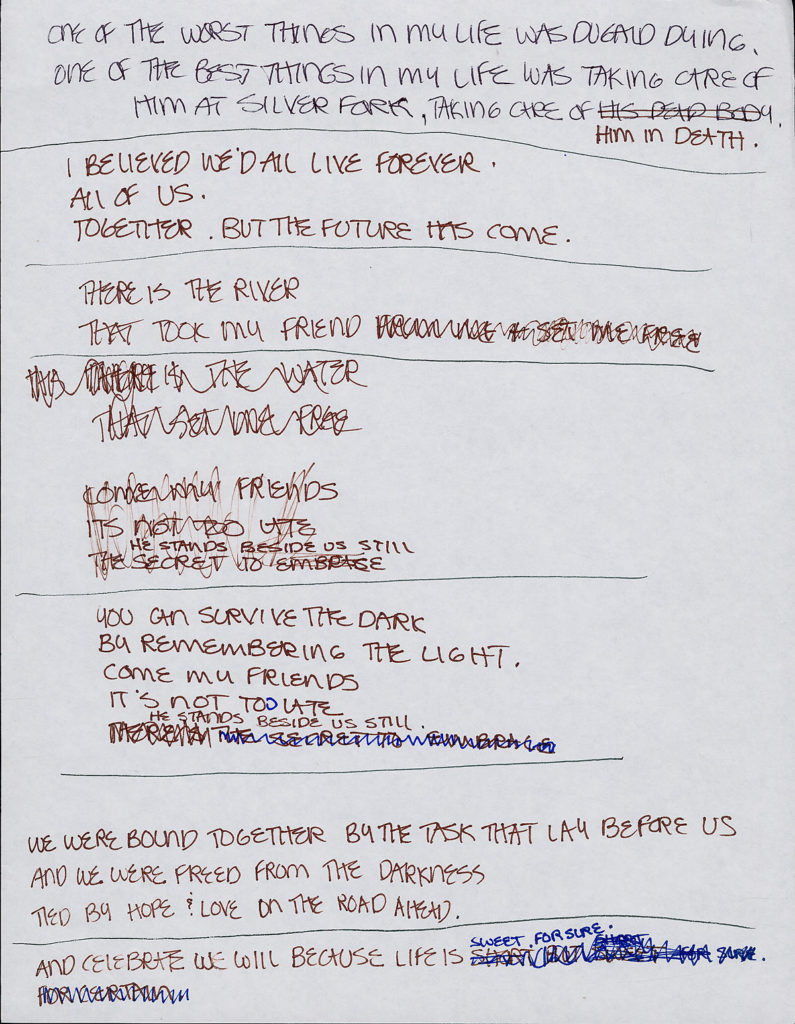 ONE OF THE WORST THINGS IN MY LIFE WAS DUGALD DYING.
ONE OF THE BEST THINGS IN MY LIFE WAS TAKING CARE OF
HIM AT SILVER FORK, TAKING CARE OF HIS DEAD BODY.
HIM IN DEATH.
I BELIEVED WE'D ALL LIVE FOREVER.
ALL OF US.
TOGETHER. BUT THE FUTURE HAS COME.
THERE IS THE RIVER
THAT TOOK MY FRIEND SET ME FREE
IN THE WATER
THAT SET ME FREE
COME MY FRIENDS
ITS NOT TOO LATE
HE STANDS BESIDE US STILL
THE SECRET TO EMBRACE
YOU CAN SURVIVE THE DARK
BY REMEMBERING THE LIGHT.
COME MY FRIENDS
IT'S NOT TOO LATE
HE STANDS BESIDE US STILL.
THE SECRET TO EMBRACE
WE WERE BOUND TOGETHER BY THE TASK THAT LAY BEFORE US
AND WE WERE FREED FROM THE DARKNESS
TIED BY HOPE & LOVE ON THE ROAD AHEAD.
SWEET FOR SURE.
AND CELEBRATE WE WILL BECAUSE LIFE IS SHORT BUT SWEET FOR SURE.